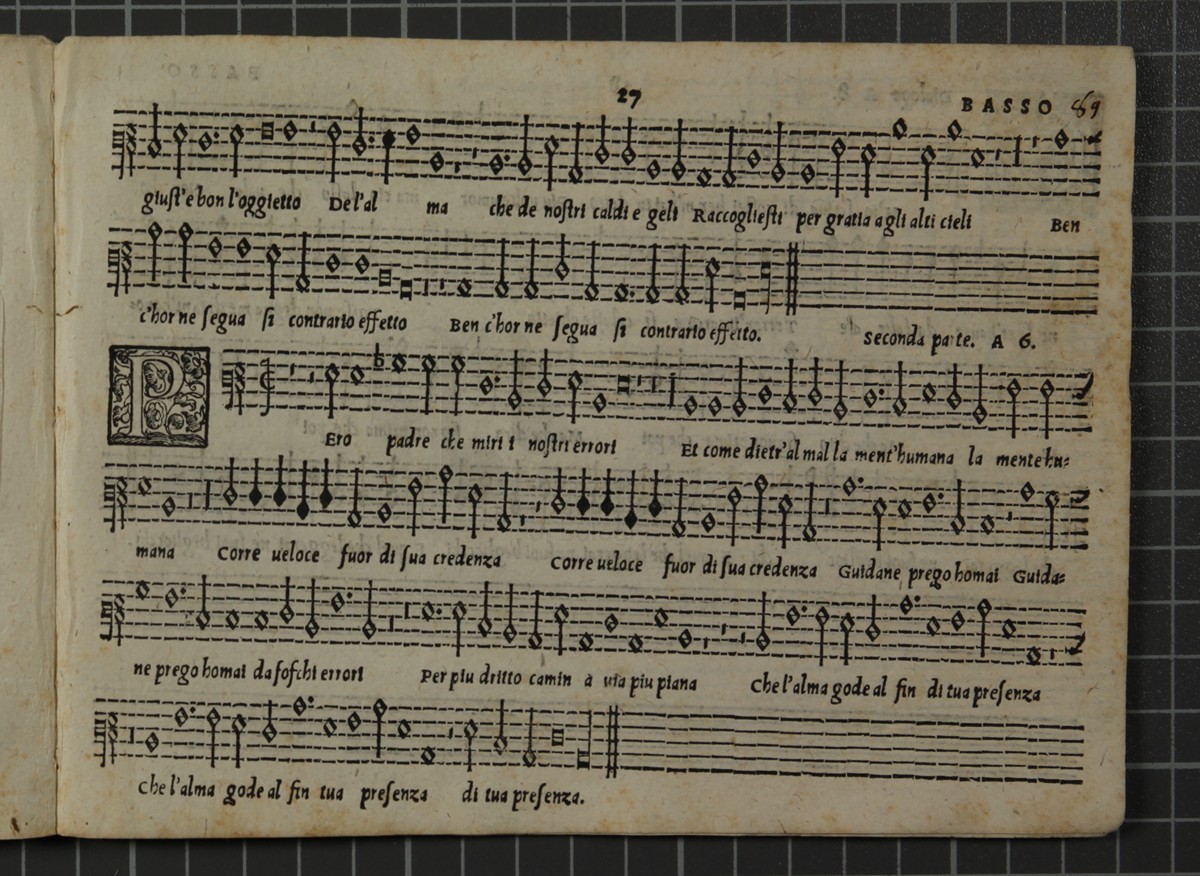 27
BASSO 69
giuſt'e bon l'oggietto De l'al ma che de noſtri caldi e geli Raccoglieſti per gratia agli alti cieli Ben
c'hor ne ſegua ſi contrario effetto Ben c'hor ne ſegua ſi contrario effetto. Seconda parte. A 6.
PEro padre che miri i noſtri errori Et come dietr'al mal la ment'humana la mente hu=
mana Corre ueloce fuor di ſua credenza Corre ueloce fuor di ſua credenza Guidane prego homai Guida=
ne prego homai da foſchi errori Per piu dritto camin à uia piu piana Che l'alma gode al fin di tua preſenza
Che l'alma gode al fin tua preſenza di tua preſenza.